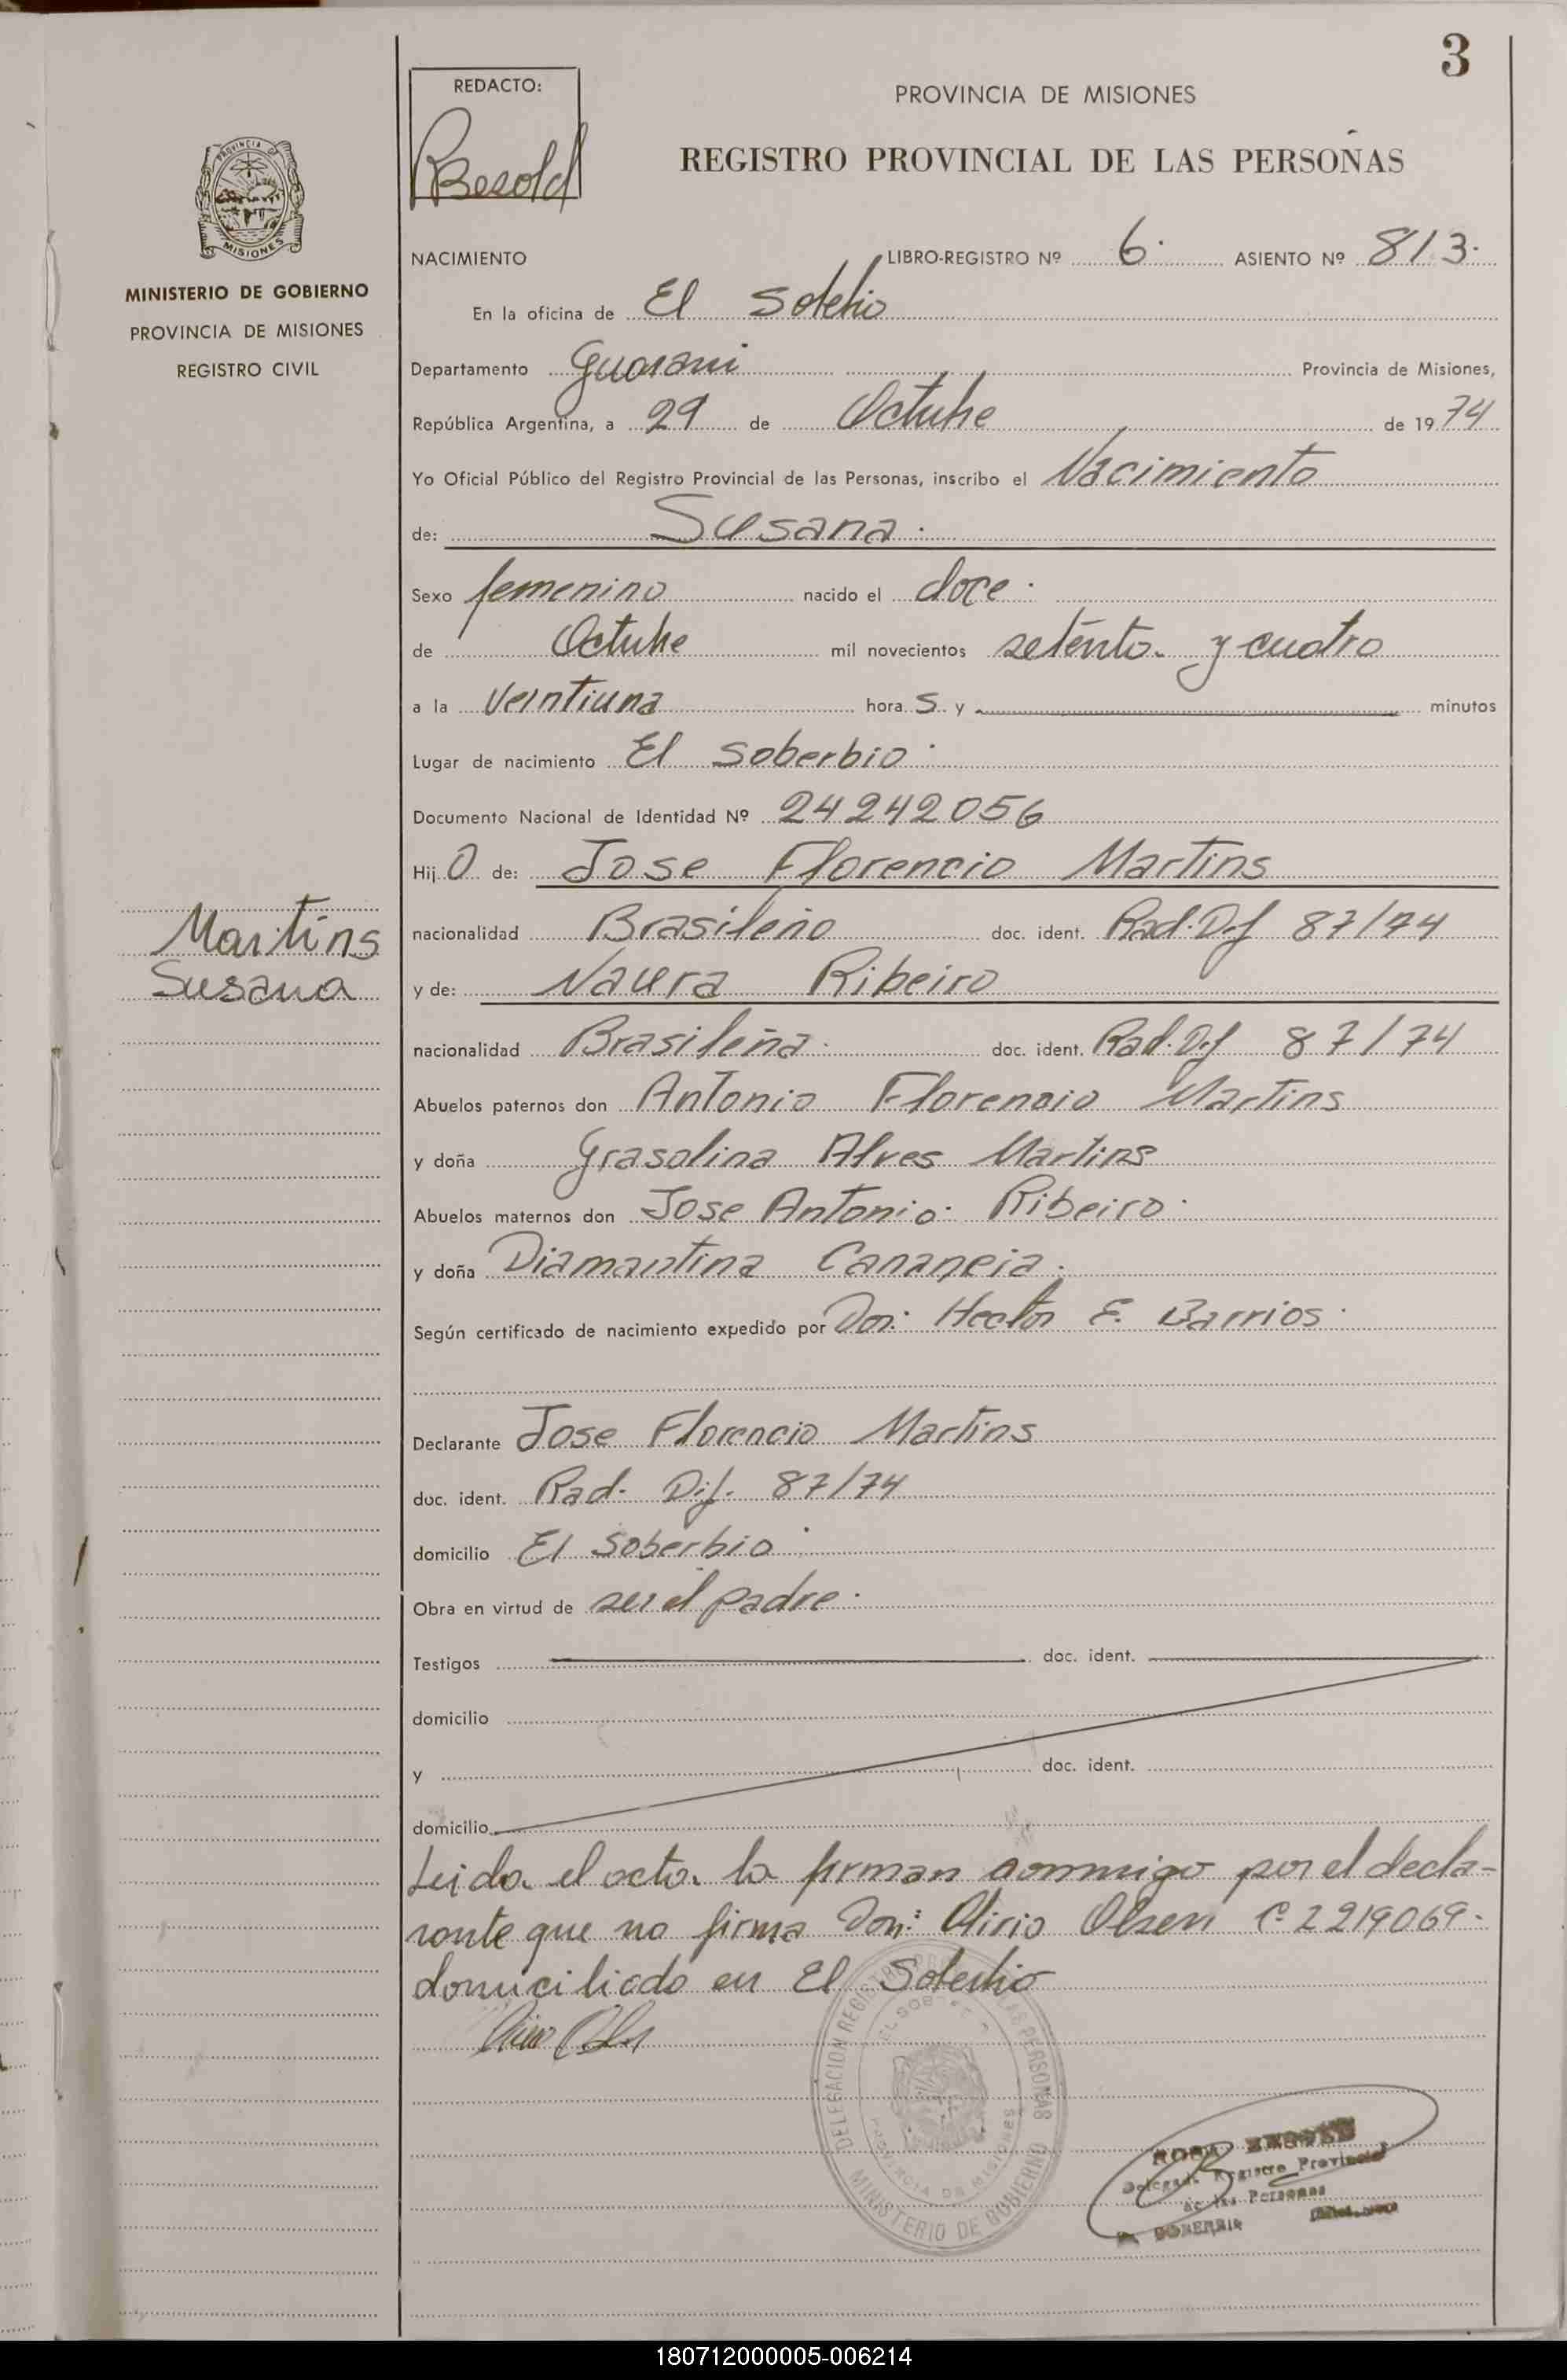 3
REDACTO:
Besold
PROVINCIA DE MISIONES
REGISTRO PROVINCIAL DE LAS PERSONAS
PROVINCIA DE
MISIONES
MINISTERIO DE GOBIERNO
PROVINCIA DE MISIONES
REGISTRO CIVIL
NACIMIENTO LIBRO-REGISTRO Nº 6. ASIENTO Nº 813.
En la oficina de El Soberbio
Departamento Guarani Provincia de Misiones,
República Argentina, a 29 de Octubre de 1974
Yo Oficial Público del Registro Provincial de las Personas, inscribo el Nacimiento
de: Susana.
Sexo femenino nacido el doce.
de Octubre mil novecientos setenta y cuatro
a la veintiuna hora s y minutos
Lugar de nacimiento El Soberbio.
Documento Nacional de Identidad Nº 24242056
Hij o de: Jose Florencio Martins
nacionalidad Brasileño doc. ident. Rad. Def 87/74
Martins
Susana
y de: Naura Ribeiro
nacionalidad Brasileña. doc. ident. Rad. Def 87/74
Abuelos paternos don Antonio Florencio Martins
y doña Grasolina Alves Martins
Abuelos maternos don Jose Antonio. Ribeiro.
y doña Diamantina Cananeia.
Según certificado de nacimiento expedido por Don: Hector E. Barrios.
Declarante Jose Florencio Martins
doc. ident. Rad. Dif. 87/74
domicilio El Soberbio.
Obra en virtud de ser el padre.
Testigos doc. ident.
domicilio
y doc. ident.
domicilio
Leida el acta la firman conmigo por el decla-
rante que no firma Don: Alirio Olsen C. 2219069.
domiciliado en El Soberbio
DELEGACION REGISTRO PROVINCIAL DE LAS PERSONAS
EL SOBERBIO
PROVINCIA DE MISIONES
MINISTERIO DE GOBIERNO
Delegada Registro Provincial
de las Personas
EL SOBERBIO
180712000005-006214